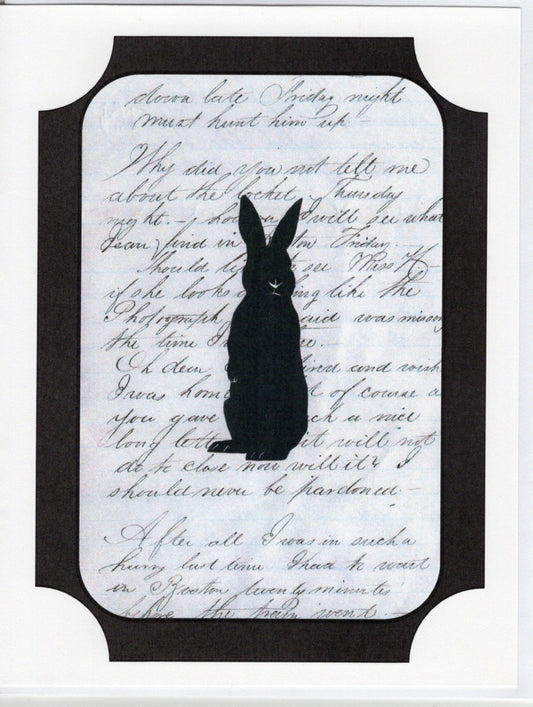 down late Friday night
must hunt him up –
Why did you not tell me
about the locket Thursday
night. – I will see what
I can find in Friday. –
Should see Miss H
if she looks like the
Photograph was
the time I
Oh dear tired and wish
I was of course a
you gave a nice
long it will not
do to close now will it? I
should never be pardoned –
After all I was in such a
hurry last time I had to wait
in Boston twenty minutes
before the train went.